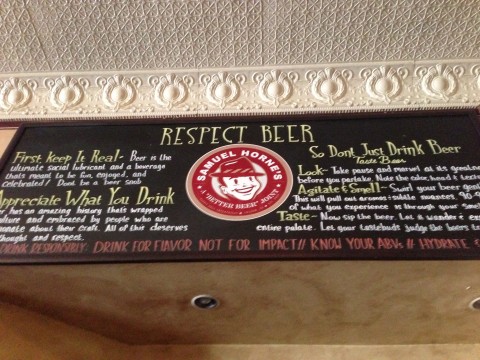 RESPECT BEER
First, Keep It Real~ Beer is the
ultimate social lubricant and a beverage
thats meant to be fun, enjoyed, and
celebrated! Dont be a beer snob
Appreciate What You Drink
has an amazing history thats wrapped
and embraced by people who are
about their craft. All of this deserves
thoughts and respect.
SAMUEL HORNE'S
A "BETTER BEER" JOINT
So Dont Just Drink Beer
Taste Beer
Look~ Take pause and marvel at its greatness
before you partake. Note the color, head &
Agitate & Smell~ Swirl your beer
This will pull out aromas + subtle nuances.
of what you experience is through your
Taste~ Now sip the beer. Let it wander &
entire palate. Let your tastebuds judge the beers
DRINK RESPONSIBLY. DRINK FOR FLAVOR NOT FOR IMPACT// KNOW YOUR ABVs // HYDRATE.